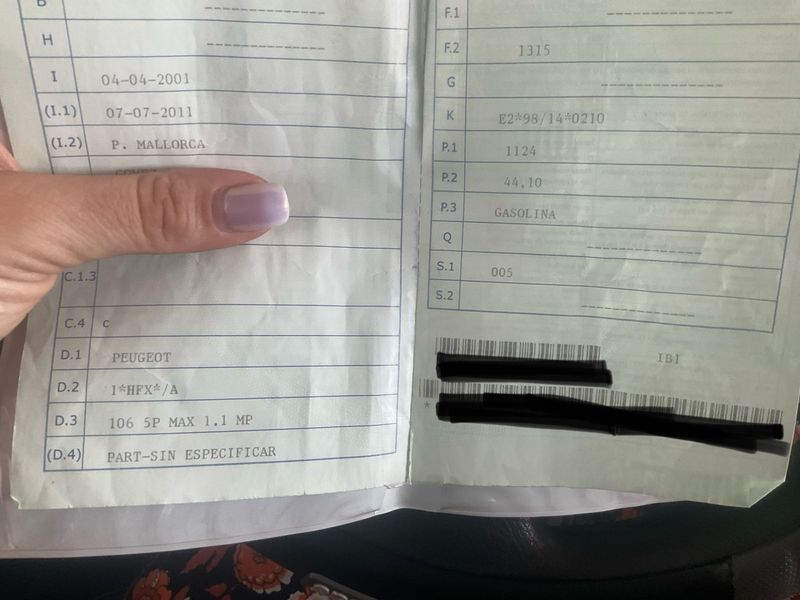 B ------------
H ------------
I 04-04-2001
(I.1) 07-07-2011
(I.2) P. MALLORCA
C.1.3
C.4 c
D.1 PEUGEOT
D.2 1*HFX*/A
D.3 106 5P MAX 1.1 MP
(D.4) PART-SIN ESPECIFICAR
F.1 ------------
F.2 1315
G ------------
K E2*98/14*0210
P.1 1124
P.2 44,10
P.3 GASOLINA
Q ------------
S.1 005
S.2 ------------
IB1
*